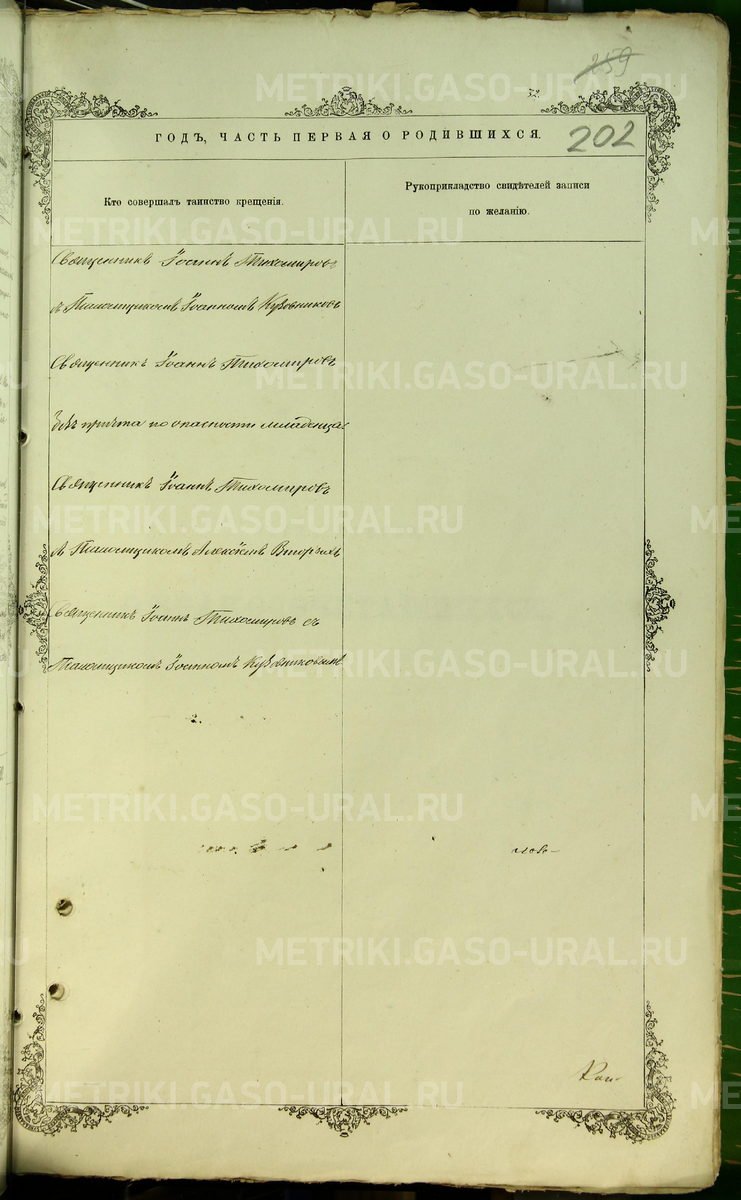 259
202
ГОДЪ, ЧАСТЬ ПЕРВАЯ О РОДИВШИХСЯ.
Кто совершалъ таинство крещенія.
Рукоприкладство свидѣтелей записи
по желанію.
Священникъ Іоаннъ Тихомировъ
съ Псаломщикомъ Іоанномъ Кузовниковъ
Священникъ Іоаннъ Тихомировъ
безъ причта по опасности младенца
Священникъ Іоаннъ Тихомировъ
съ Псаломщикомъ Алексѣемъ Вторыхъ
Священникъ Іоаннъ Тихомировъ съ
Псаломщикомъ Іоанномъ Кузовниковымъ
METRIKI.GASO-URAL.RU